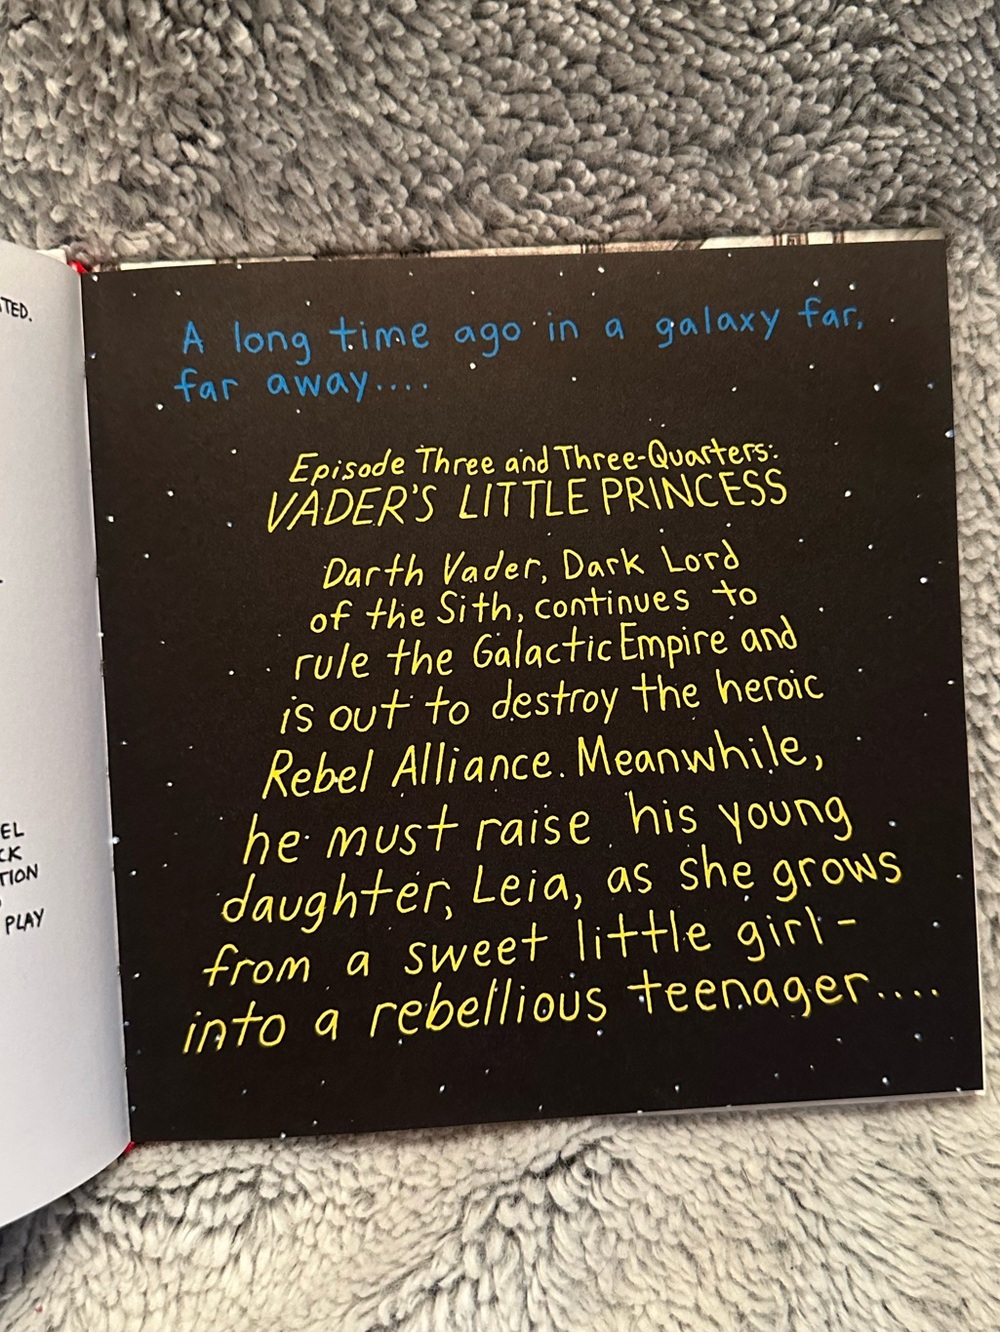 TED.
EL
CK
TION
PLAY
A long time ago in a galaxy far,
far away....
Episode Three and Three-Quarters:
VADER'S LITTLE PRINCESS
Darth Vader, Dark Lord
of the Sith, continues to
rule the Galactic Empire and
is out to destroy the heroic
Rebel Alliance. Meanwhile,
he must raise his young
daughter, Leia, as she grows
from a sweet little girl-
into a rebellious teenager....